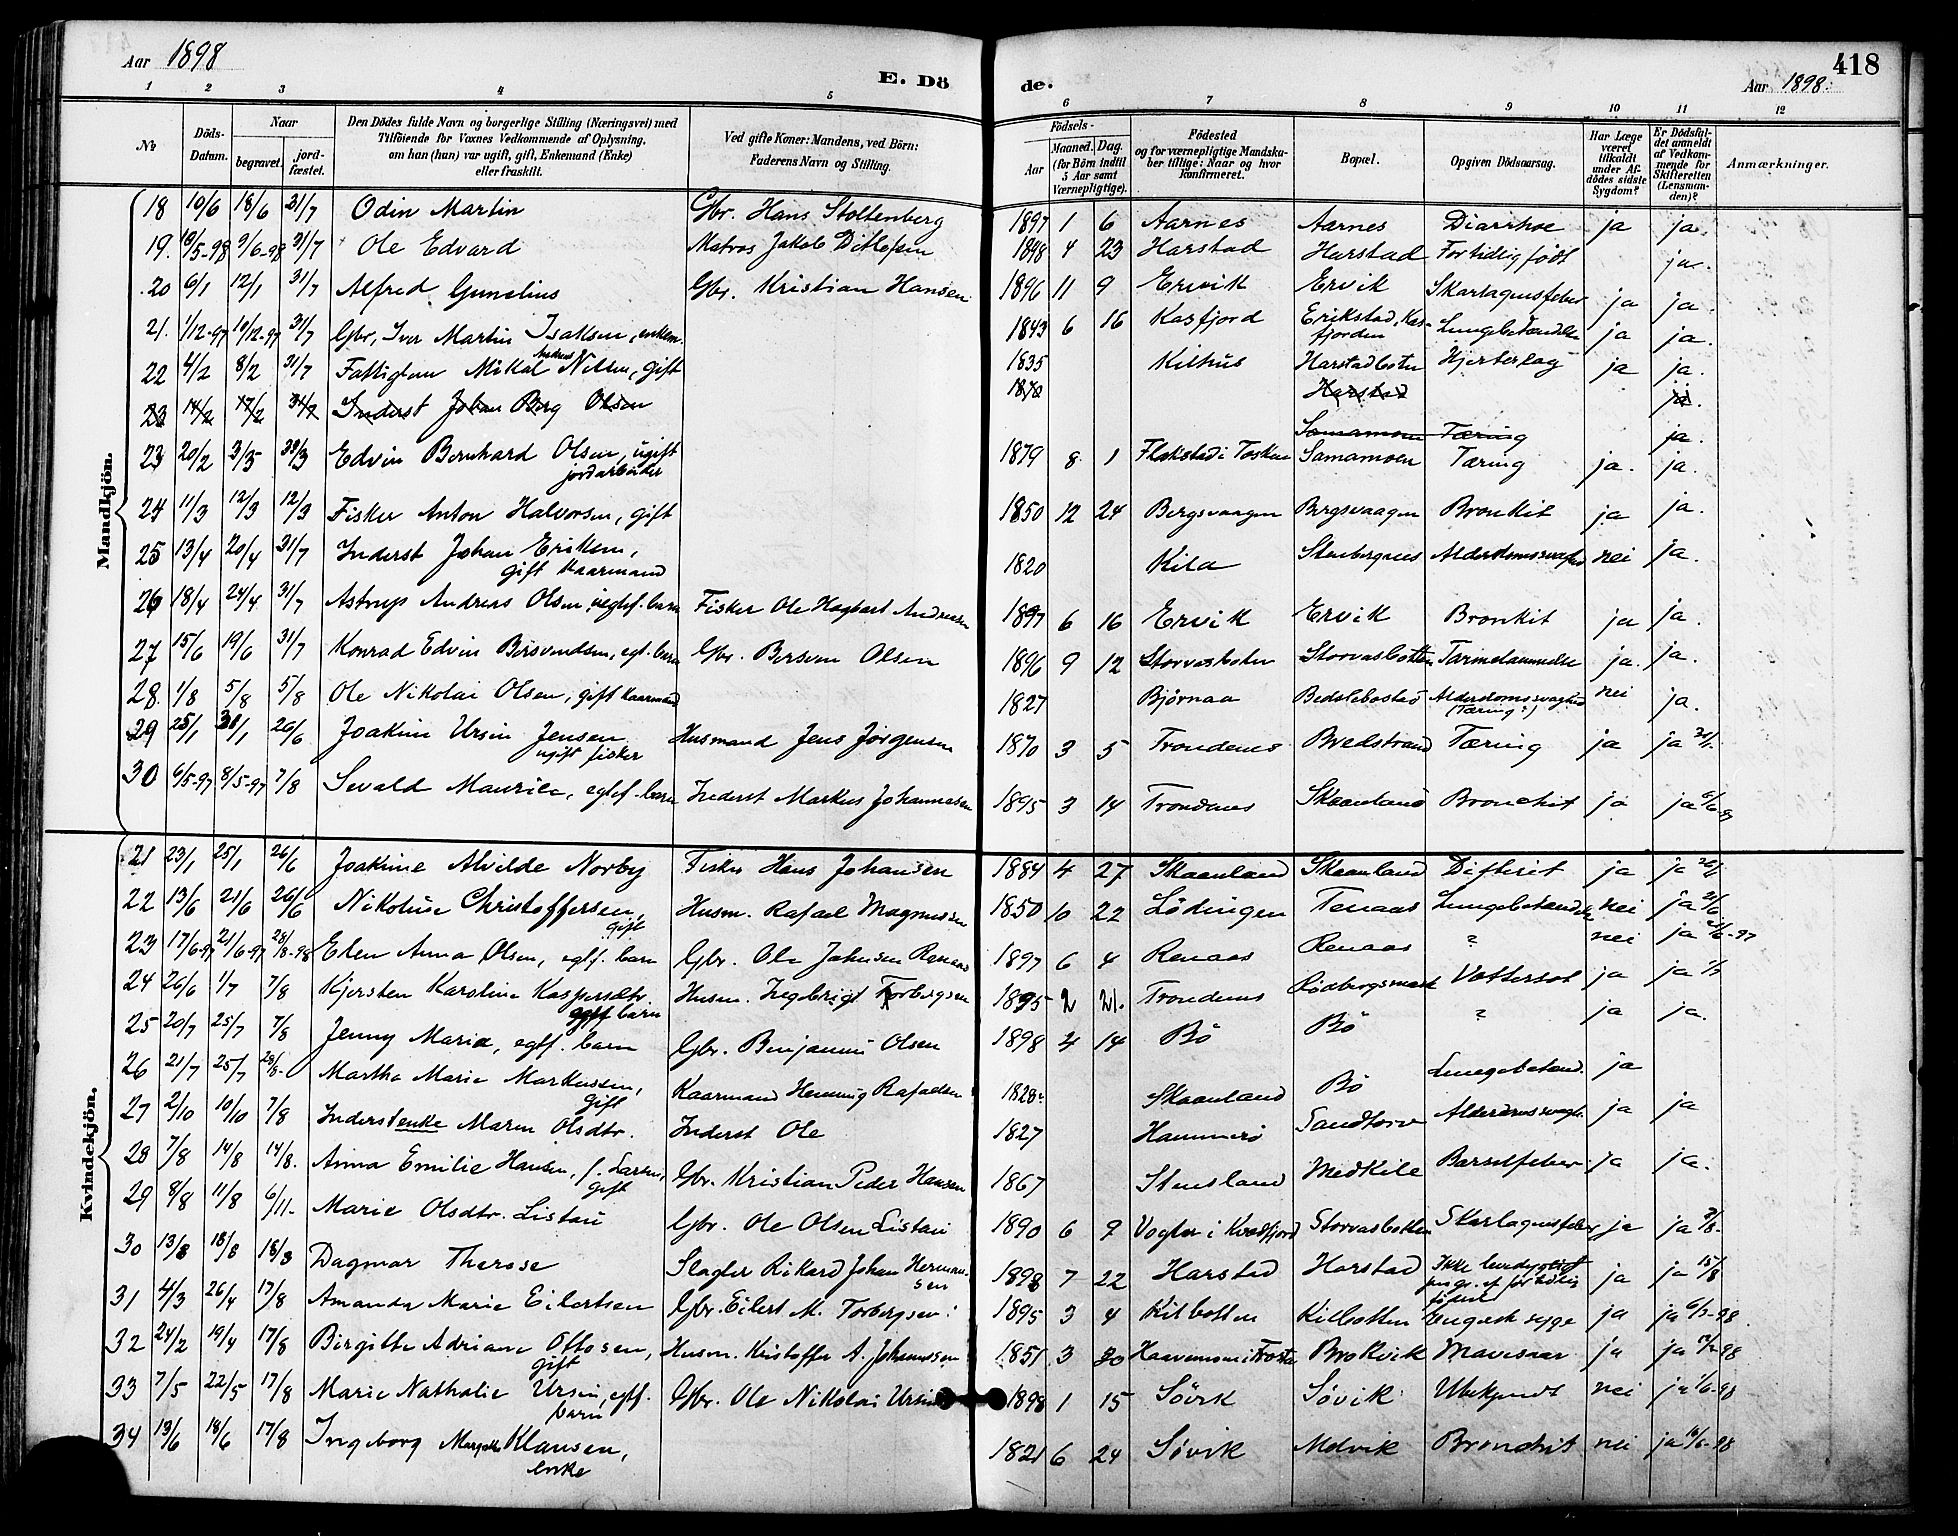 Aar 1898
E. Dö
de.
Aar 1898.
418
1 2 3 4 5 6 7 8 9 10 11 12
No.
Döds-Datum.
Naar
begravet.
jordfæstet.
Den Dödes fulde Navn og borgerlige Stilling (Næringsvei) med
Tilföiende for Voxnes Vedkommende af Oplysning,
om han (hun) var ugift, gift, Enkemand (Enke)
eller fraskilt.
Ved gifte Koner: Mandens, ved Börn:
Faderens Navn og Stilling.
Födsels-
Aar
Maaned. Dag.
(for Börn indtil
5 Aar samt
Værnepligtige).
Födested
og for værnepligtige Mandska-
ber tillige: Naar og hvor
konfirmeret.
Bopæl.
Opgiven Dödsaarsag.
Har Læge
været
tilkaldt
under Af-
dödes sidste
Sygdom?
Er Dödsfal-
det anmeldt
af Vedkom-
mende for
Skifteretten
(Lensman-
den)?
Anmærkninger.
Mandkjön.
18 10/6 18/6 31/7 Odin Martin Gbr. Hans Stoltenberg 1897 1 6 Aarnes Aarnes Diarrhoe ja ja.
19. 10/5-98 9/6-98 31/7 Ole Edvard Matros Jakob Ditlefsen 1898 4 23 Harstad Harstad For tidlig født ja.
20 6/1 12/1 31/7 Alfred Gunelius Gbr. Kristian Hansen 1896 11 9 Ervik Ervik Skarlagensfeber ja ja.
21. 1/12-97 10/12-97 31/7 Gbr, Iver Martin Isaksen, enkem. 1843 6 16 Kasfjord Erikstad, Kas-
fjorden Lungebetændelse ja ja.
22 4/2 8/2 31/7 Fattiglem Mikal Andreas Nilsen, gift 1835 Kilhus Harstadboten Hjerteslag ja ja.
23 14/2 17/2 31/7 Inderst Johan Berg Olsen 1870 Harstad ja.
Samamoen Tæring ja.
23 20/2 3/5 Edvin Bernhard Olsen, ugift
jordarbeider 1879 8 1 Flakstad i Samamoen Tæring ja. ja.
24 11/3 12/3 12/3 Fisker Anton Halvorsen, gift 1850 12 24 Bergsvaagen Bergsvaagen Bronkit ja ja.
25 13/4 20/4 31/7 Inderst Johan Eriksen,
gift Kaarmand 1820 Kila Stenbergnes Alderdomssvaghed nei ja.
26 18/4 24/4 31/7 Astrup Andreas Olsen, uegtef. barn Fisker Ole Hagbart Andreasen 1897 6 16 Ervik Ervik Bronkit ja ja.
27 15/6 19/6 31/7 Konrad Edvin Bersvendsen, egt. barn Gbr. Bersven Olsen 1896 9 12 Storvasboten Storvasbotten ja. ja.
28. 1/8 5/8 5/8 Ole Nikolai Olsen, gift Kaarmand 1827 Bjørnaa Alderdomssvaghed
(Tæring?) nei ja.
29 25/1 31/1 26/6 Joakim Ursin Jensen
ugift fisker Husmand Jens Jørgensen 1870 3 5 Trondenes Bredstrand Tæring ja ja
30 6/5-97 8/5-97 7/8 Sevald Maurits, egtef. barn Inderst Markus Johannesen 1895 3 14 Trondenes Skaanland Bronchit ja ja
Kvindekjön.
21 23/1 25/1 26/6 Joakime Alvilde Norby Fisker Hans Johansen 1884 4 27 Skaanland Skaanland Difterit ja ja
22 13/6 21/6 26/6 Nikoline Christoffersen,
gift Husm. Rafael Magnussen 1850 10 22 Lødingen Tenaas Lungebetændelse nei ja 21/6
23 17/6-97 21/6-97 28/8-98 Elen Anna Olsen, egtf. barn Gbr. Ole Johnsen Renaas 1897 6 4 Renaas Renaas ? nei ja 21/6-97
24 26/6 1/7 7/8 Kjersten Karoline Kaspersdtr.
egtf barn Husm. Ingebrigt Torbergsen 1895 2 21. Trondenes Rødbergsmark Vattersot ja ja 1/7
25 20/7 25/7 7/8 Jenny Maria, egtf. barn Gbr. Benjamin Olsen 1898 4 14 Bø Bø ? ja ja.
26 21/7 25/7 28/8- Martha Marie Markussen,
gift Kaarmand Henning Rafaelsen 1828. Skaanland Bø Lungebetænd. ja
27 2/10 10/10 7/8 Inderstenke Maren Olsdtr. Inderst Ole 1827 Hammerø Sandtorv Alderdomssvagh. ja ja
28 7/8 14/8 14/8. Anna Emilie Hansen, f. Larsen,
gift Gbr. Kristian Peder Hansen 1867 Stensland Medkile Barselfeber ja ja.
29 8/8 11/8 6/11- Marie Olsdtr. Listau Gbr. Ole Olsen Listau 1890 6 9 i Kvedfjord Storvasbotten Skarlagensfeber ja ja 9/8-
30 13/8 18/8 18/8 Dagmar Therese Slagter Rikard Johan Herman-
sen 1898 7 22 Harstad Harstad Ikke levedygtig
for tidlig
født ja ja 15/8
31 4/3 26/4 17/8 Amanda Marie Eilertsen Gbr. Eilert M. Torbergsen 1895 3 4 Kilbotten Kilbotten Engelsk syge ja ja 6/3-98.
32 24/2 19/4 17/8 Birgitte Adriane Ottosen,
gift Husm. Kristoffer A. Johannssen 1851 3 20 Brokvik Mavesaar ja ja
33 7/5 22/5 17/8 Marie Nathalie Ursin, egtf.
barn Gbr. Ole Nikolai Ursin 1898 1 15 Søvik Søvik Ubekjendt nei ja 1/6-98
34 13/6 18/6 17/8 Ingeborg Klausen,
Enke 1821 6 24 Søvik Melvik Bronchit nei ja 16/6-98